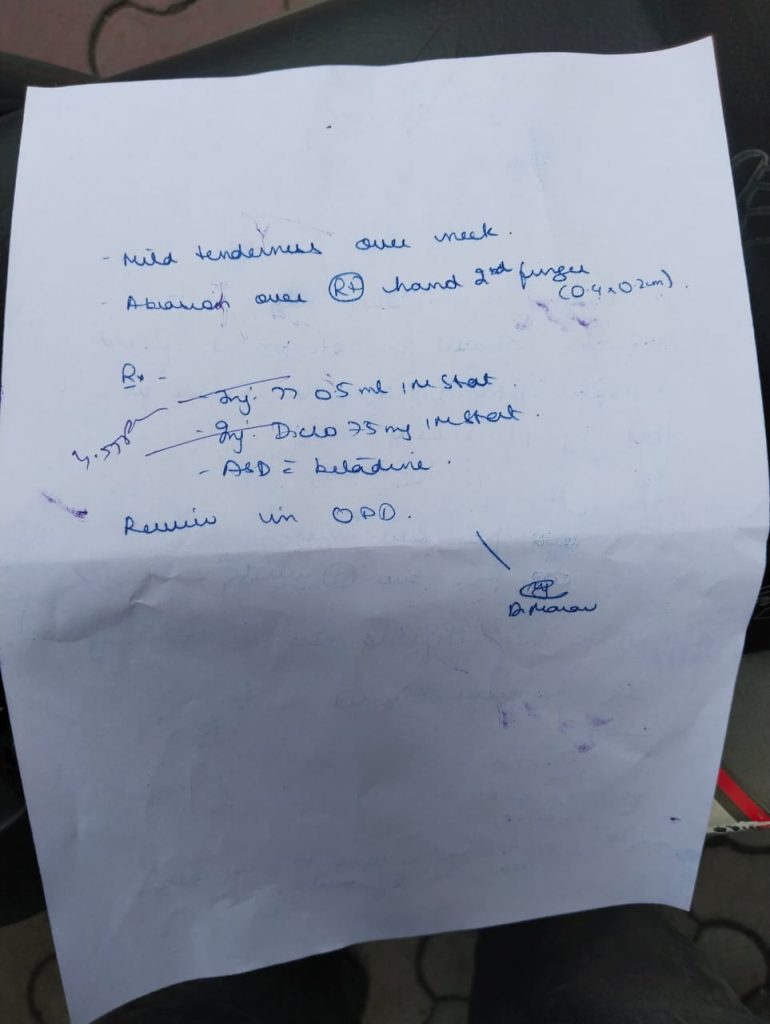 - Mild tenderness over neck.
- Abrasion over Rt hand 2nd finger
(0.4 x 0.2cm).
Rx -
- Inj. TT 0.5 ml IM Stat.
- Inj. Diclo 75 mg IM Stat.
- ASD = betadine.
Review in OPD.